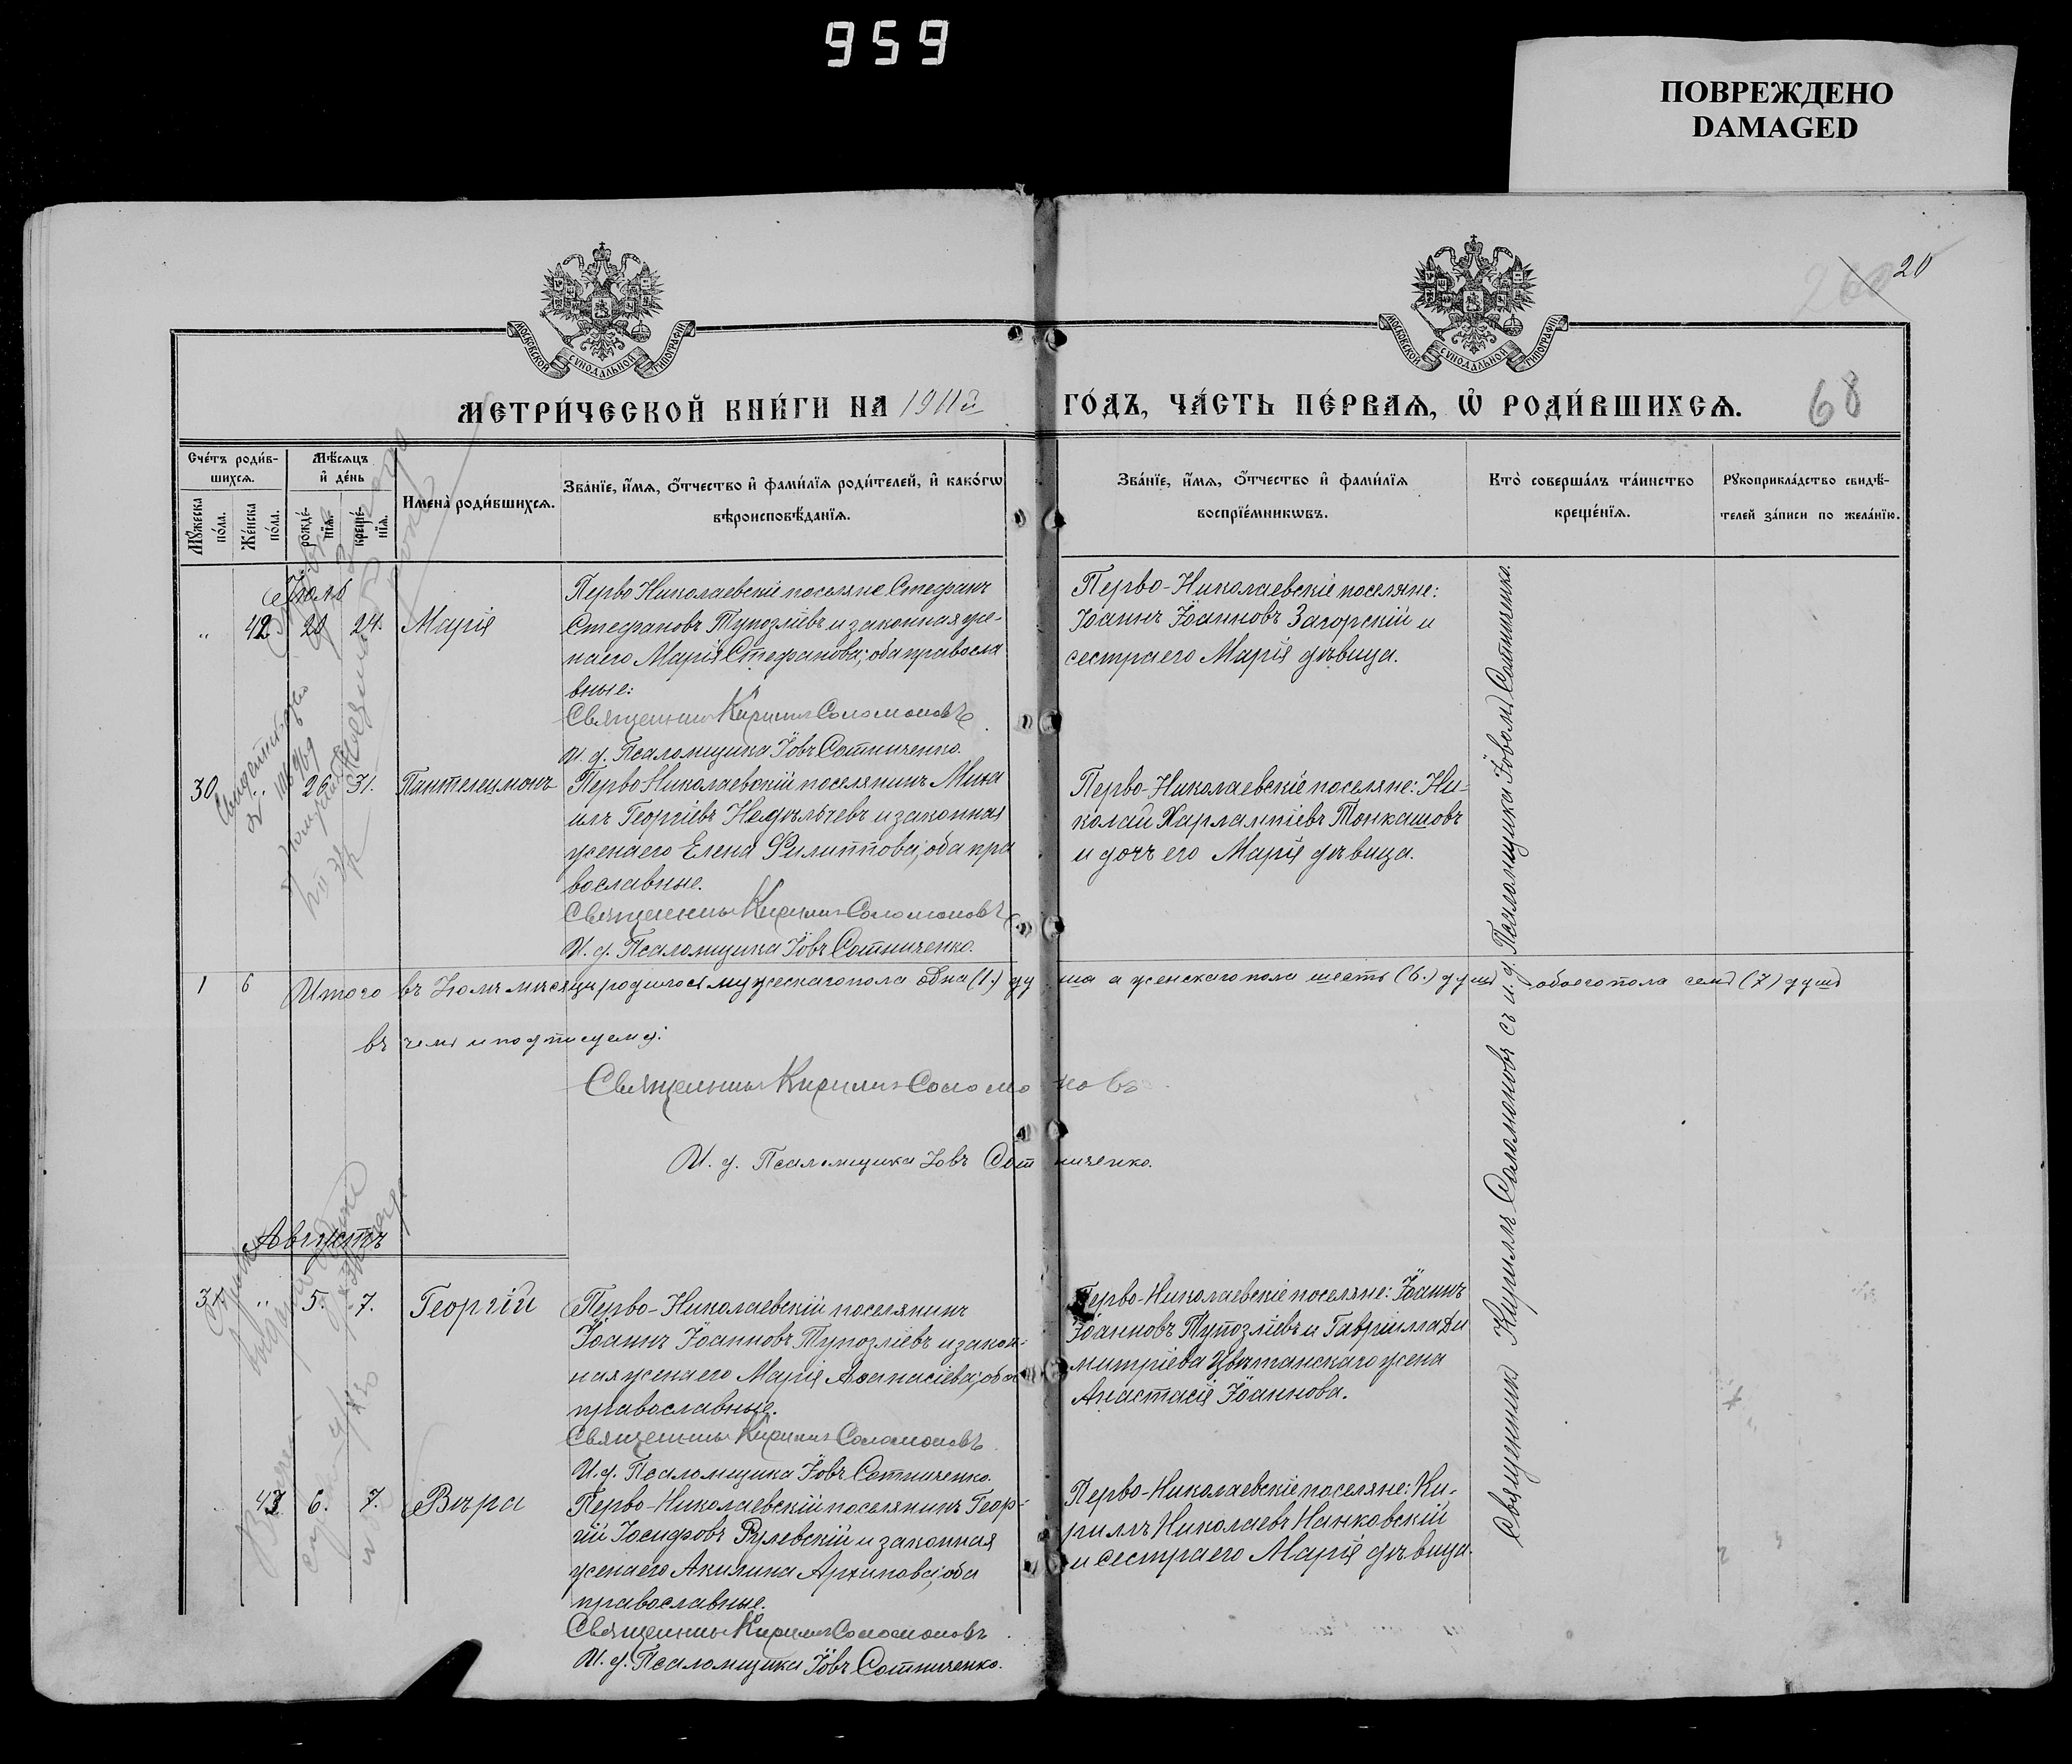 959
ПОВРЕЖДЕНО
DAMAGED
20
68
МОСКОВСКОЙ СѴНОДАЛЬНОЙ ТИПОГРАФІИ
МОСКОВСКОЙ СѴНОДАЛЬНОЙ ТИПОГРАФІИ
МЕТРИ́ЧЕСКОЙ КНИ́ГИ НА 1911й ГО́ДЪ, ЧА́СТЬ ПЕ́РВАѦ, Ѡ҆ РОДИ́ВШИХСѦ.
Сче́тъ роди́в-
шихсѧ.
Мꙋ́жеска по́ла.
Же́нска по́ла.
Мѣ́сѧцъ
и҆ де́нь
рожде́-
нїѧ.
креще́-
нїѧ.
Имена̀ роди́вшихсѧ.
Зва́нїе, и҆́мѧ, ѻ҆́тчество и҆ фами́лїѧ роди́телей, и҆ како́гѡ
вѣроисповѣ́данїѧ.
Зва́нїе, и҆́мѧ, ѻ҆́тчество и҆ фами́лїѧ
воспрїе́мникѡвъ.
Кто̀ соверша́лъ та́инство
креще́нїѧ.
Рꙋкоприкла́дство свидѣ́-
телей за́писи по жела́нїю.
Іюль
" 42 20 24. Марія
Перво Николаевскіе поселяне Стефанъ
Стефановъ Тупозліевъ и законная же-
на его Марія Стефанова; оба правосла
вные:
Священникъ Кириллъ Соломоновъ
И. д. Псаломщика Іовъ Сотниченко.
Перво-Николаевскіе поселяне:
Іоаннъ Іоанновъ Загорскій и
сестра его Марія дѣвица.
30 " 26 31. Пантелеимонъ
Перво Николаевскій поселянинъ Миха
илъ Георгіевъ Недѣльчевъ и законная
жена его Елена Филиппова; оба пра
вославные.
Священникъ Кириллъ Соломоновъ
И. д. Псаломщика Іовъ Сотниченко.
Перво-Николаевскіе поселяне: Ни-
колай Харлампіевъ Тонкашовъ
и дочь его Марія дѣвица.
1 6 Итого въ Іюлѣ мѣсяцѣ родилось мужескаго пола одна (1.) душа а женскаго пола шесть (6.) душъ обоего пола семь (7) душъ
въ чемъ и подписуемся:
Священникъ Кириллъ Соломоновъ
И. д. Псаломщика Іовъ Сотниченко.
Августъ
31 " 5. 7. Георгій
Перво-Николаевскій поселянинъ
Іоаннъ Іоанновъ Тупозліевъ и закон-
ная жена его Марія Аѳанасіева; оба
православные.
Священникъ Кириллъ Соломоновъ
И. д. Псаломщика Іовъ Сотниченко.
Перво-Николаевскіе поселяне: Іоаннъ
Іоанновъ Тупозліевъ и Гавріила Ди
митріева Цвѣтанскаго жена
Анастасія Іоаннова.
43 6. 7. Вѣра
Перво-Николаевскій поселянинъ Геор-
гій Іосифовъ Рулевскій и законная
жена его Акилина Архипова; оба
православные.
Священникъ Кириллъ Соломоновъ
И. д. Псаломщика Іовъ Сотниченко.
Перво-Николаевскіе поселяне: Ки-
риллъ Николаевъ Нанковскій
и сестра его Марія дѣвица.
Священникъ Кириллъ Соломоновъ съ и. д. Псаломщика Іовомъ Сотниченко.